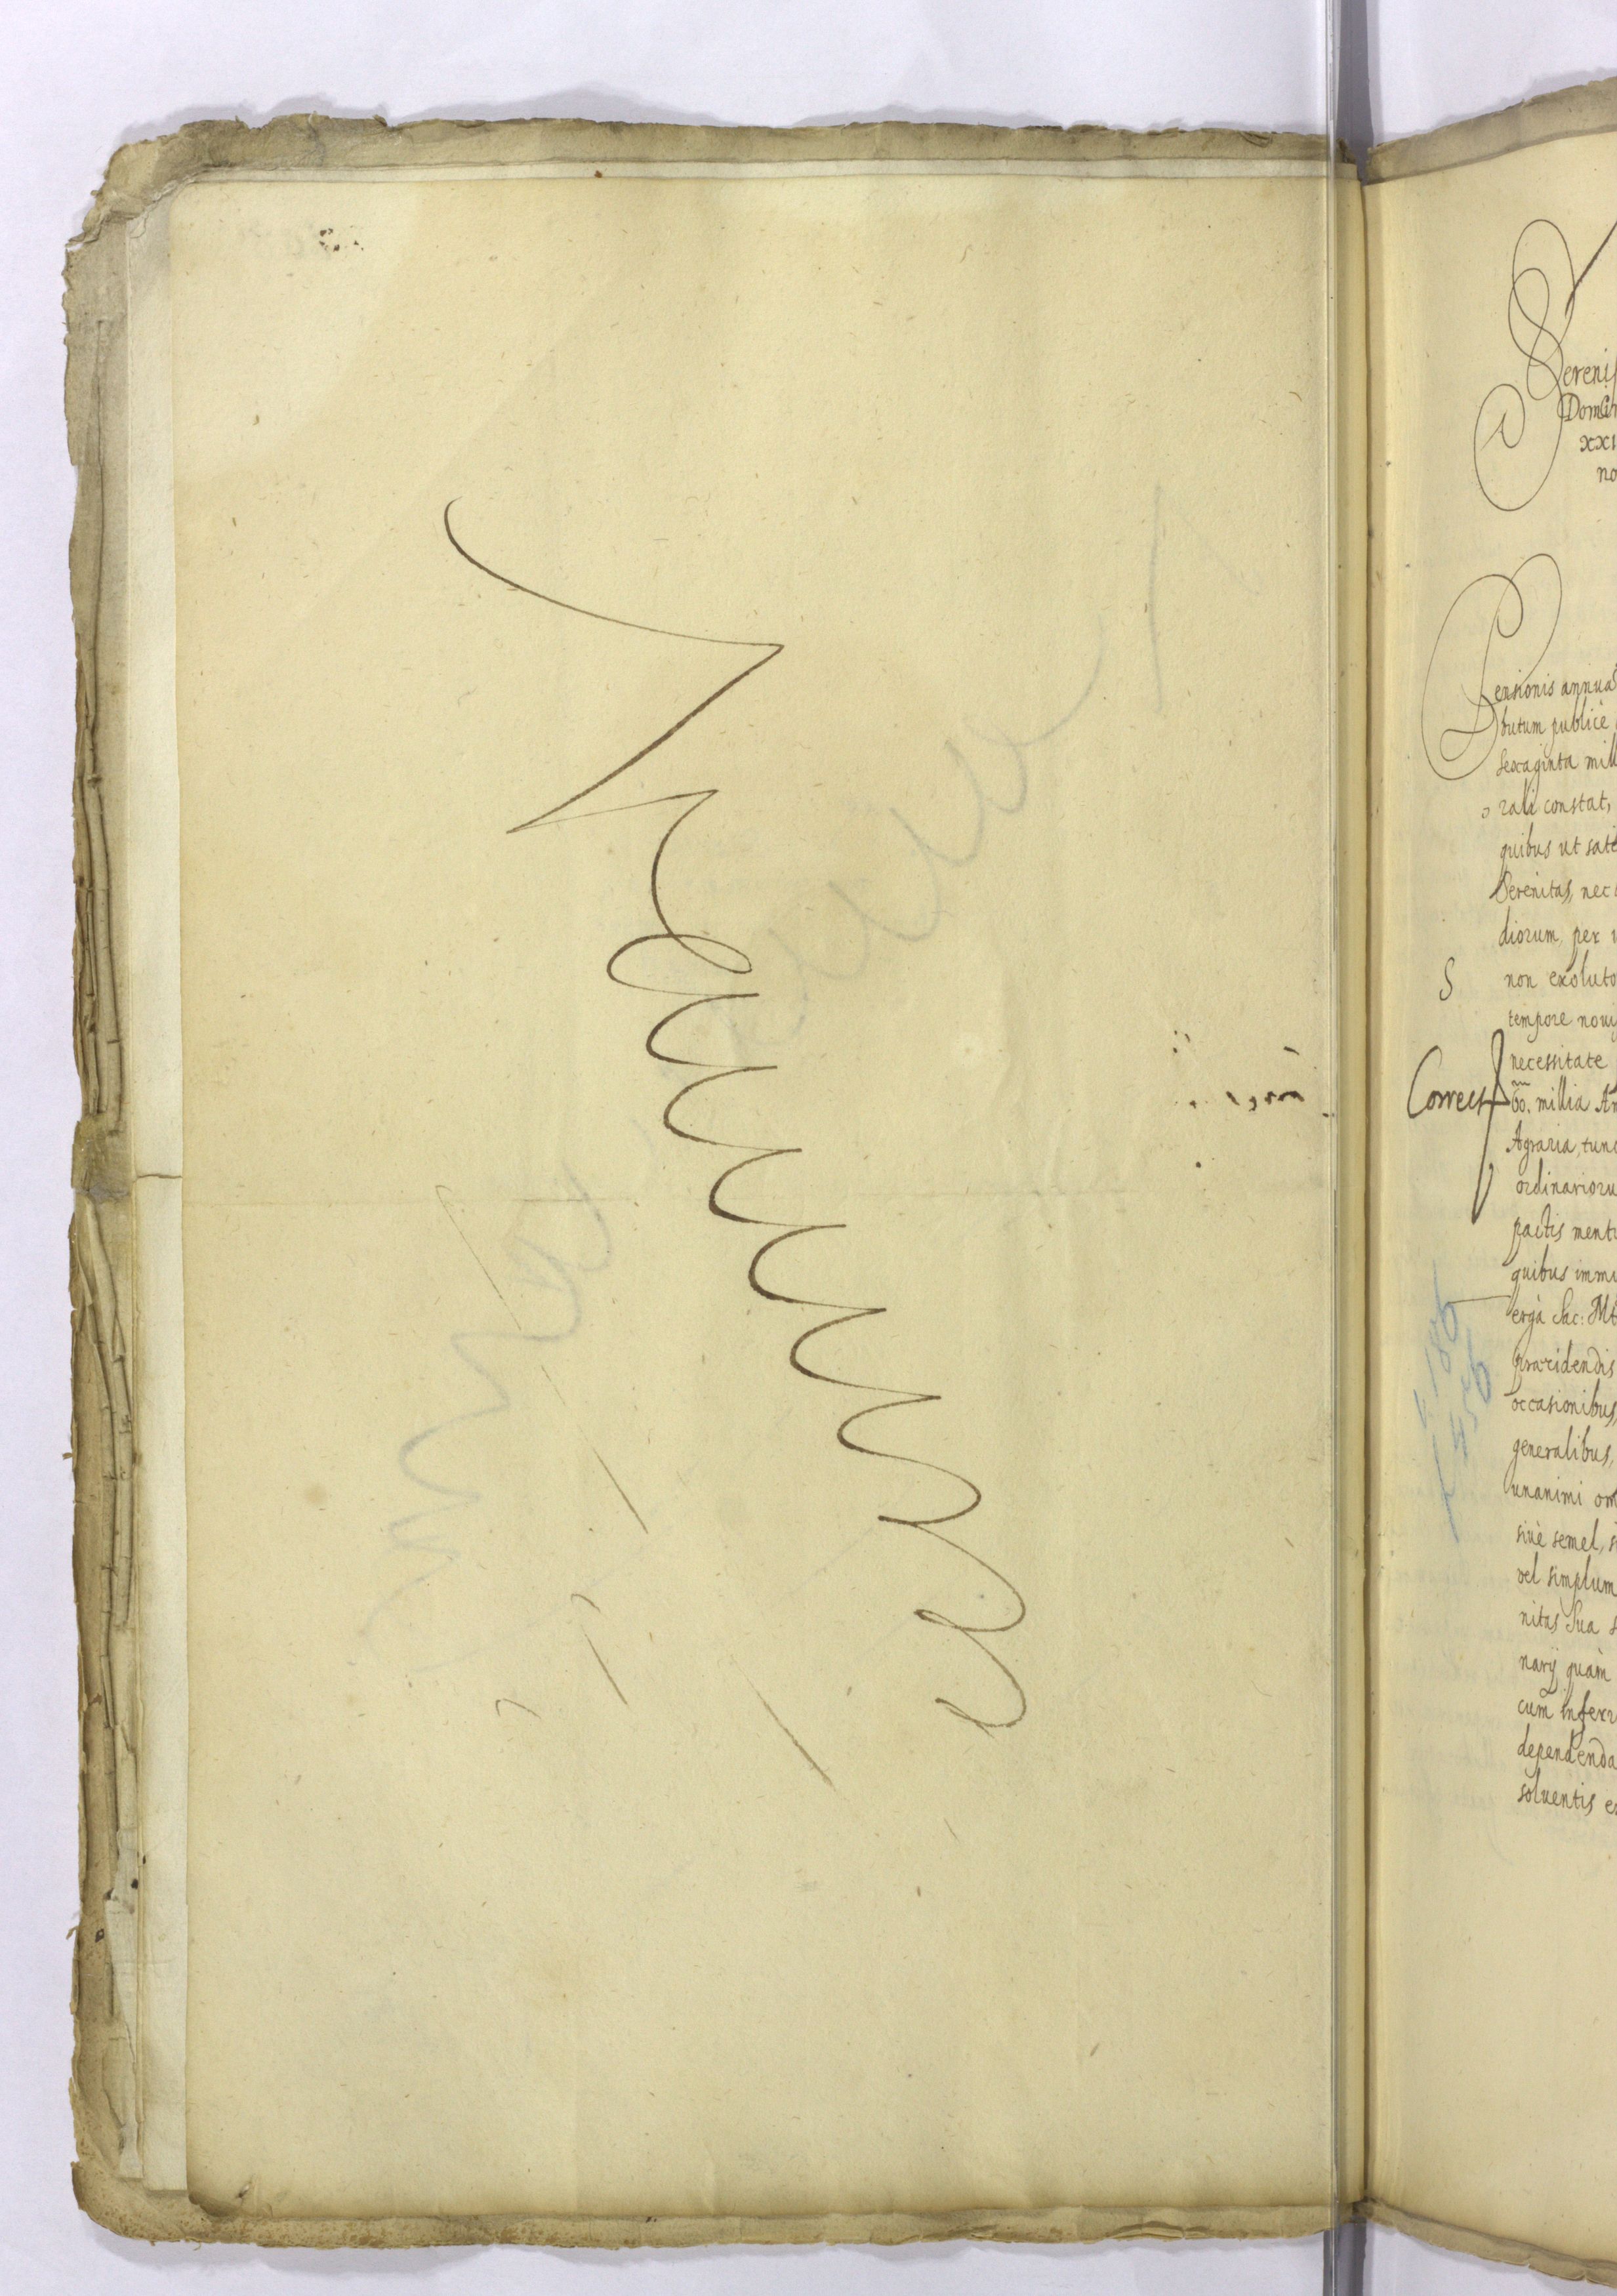 Sereniss
Domin
xxi
no
Pensionis annua
butum publicè
sexaginta mill
rali constat,
quibus ut sate
Serenitas, nec
diorum, per
S non exoluto
tempore nouu
necessitate
Correct 60. millia An
Agraria, tunc
ordinarioru
pactis menti
quibus immu
ergà Sac: Mt
præcidendis
occasionibus,
generalibus,
unanimi om
siuè semel, s
vel simplum
nitas Sua s
narij quàm
cum inferri
dependenda
soluentis e